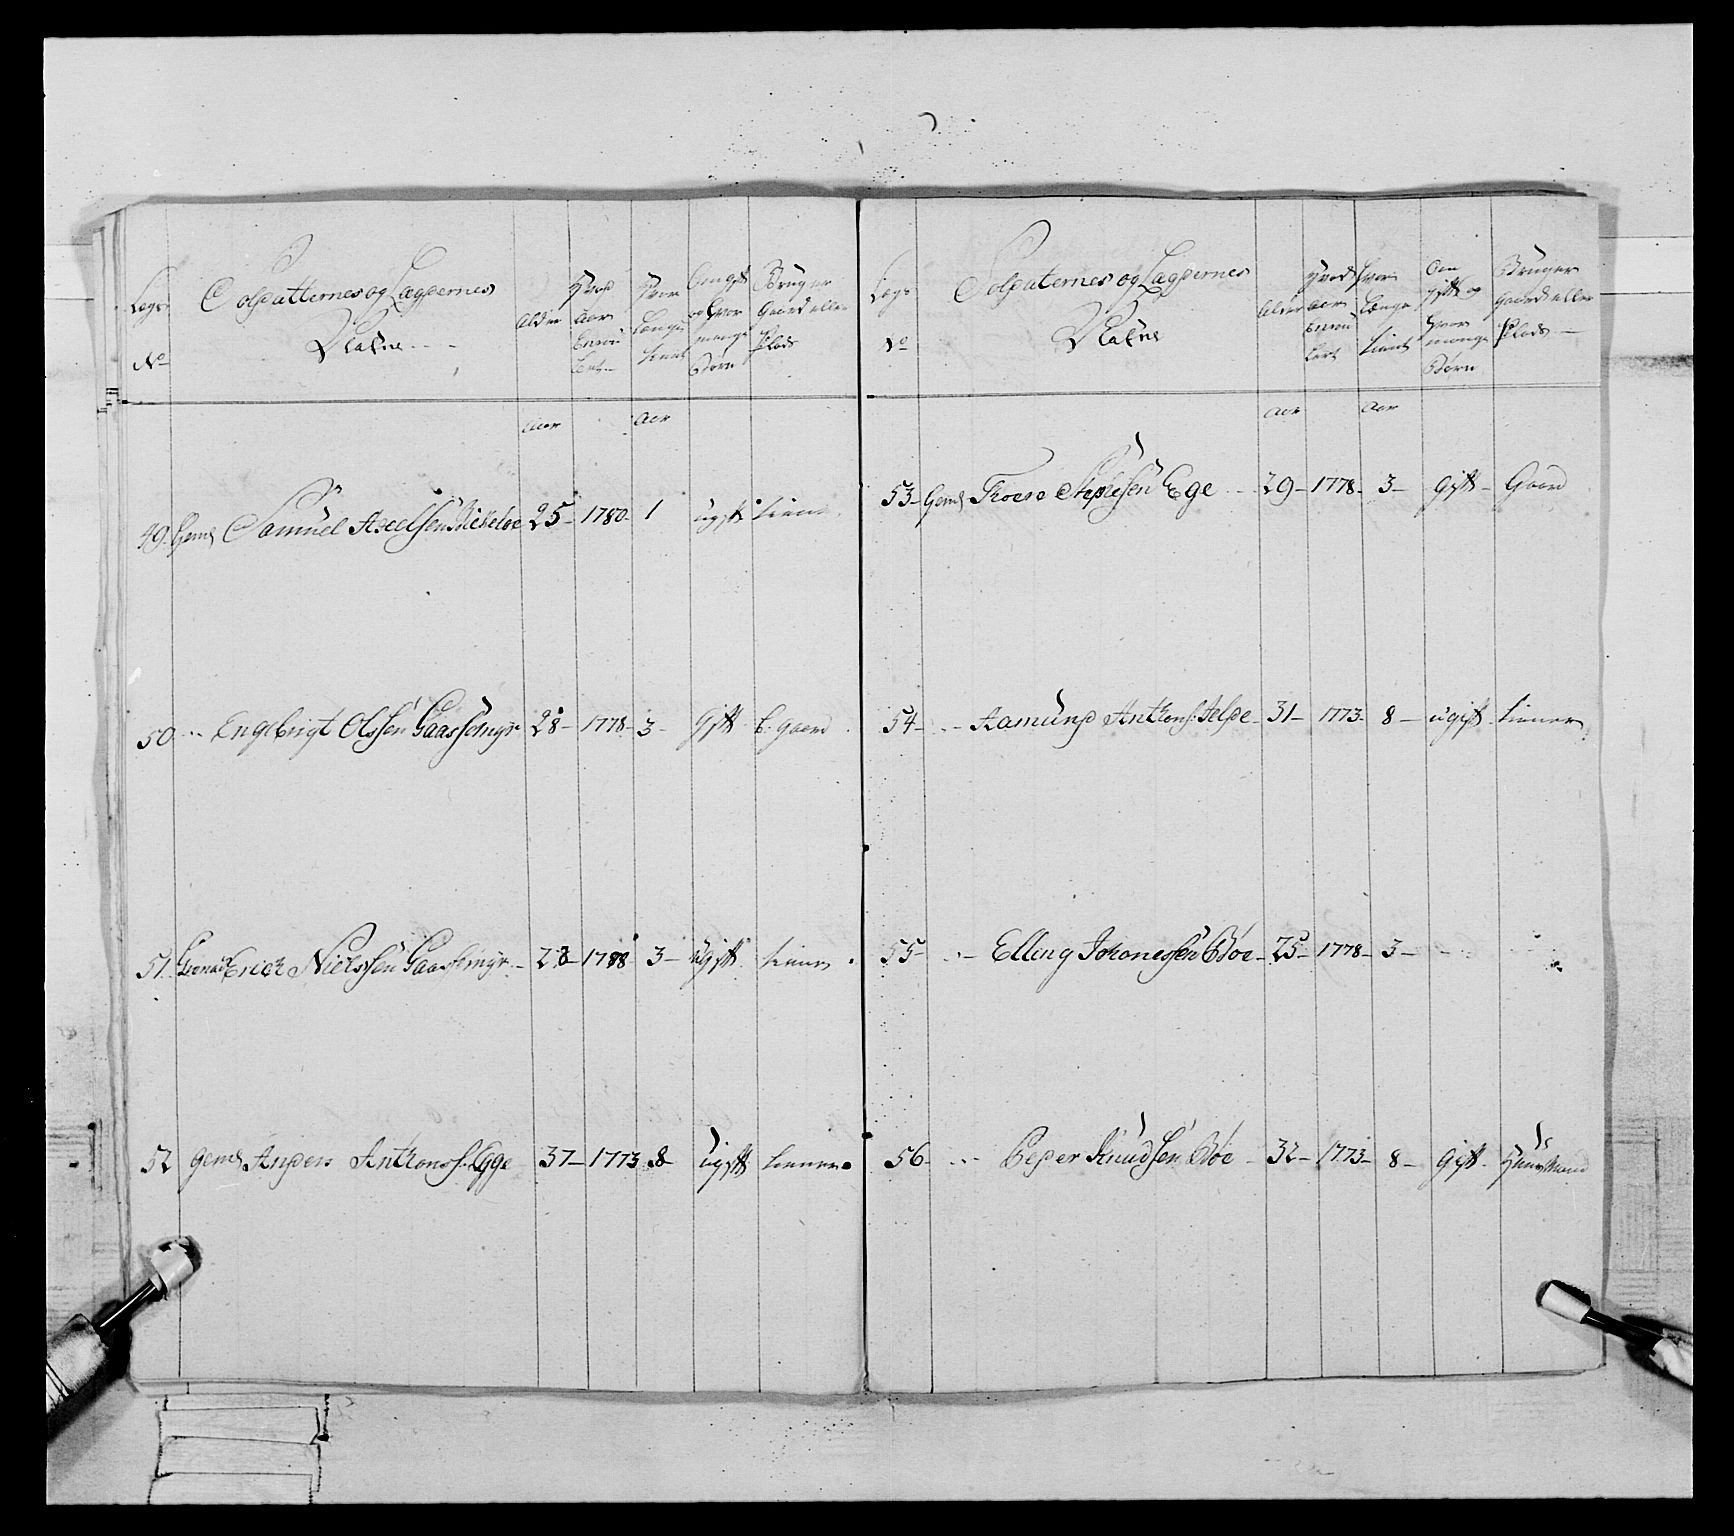 Legs
No
Soldatternes og Lægdernes
Nafne
Alder
Hvad
Aar
Enrou
lert
Hvor
længe
tient
Om gift
og hvor
mange
Børn
Bruger
Gaard eller
Plads
Aar
Aar
49. Gem Samuel Axelsen 25 - 1780 - 1 ugift tiener
50 - Engebrigt Olssen Gaassemyr 28 - 1778 - 3 - Gift b. gaard
51. Erich Nielssen Gaassemyr - 28 - 1788 3 - ugift tiener
52 gem Anders Anthonss. Egge 37 - 1773. 8 - ugift tiener
Legs
No
Soldaternes og Lægdernes
Nafne
Alder
Hvad
Aar
Enrou
lert
Hvor
længe
tient
Om
gift og
hvor
mange
Børn
Bruger
Gaard eller
Plads -
Aar
Aar
53 - Gem Ege - 29 - 1778 - 3 - gift - Gaard
54 - Aamund Anthons. - 31 - 1773 - 8 - ugift - tiener
55 - Elling Johanessen Bøe - 25 - 1778 - 3 -
56 - Peder Knudsen Bøe - 32 - 1773 - 8 - Gift - Huusmand